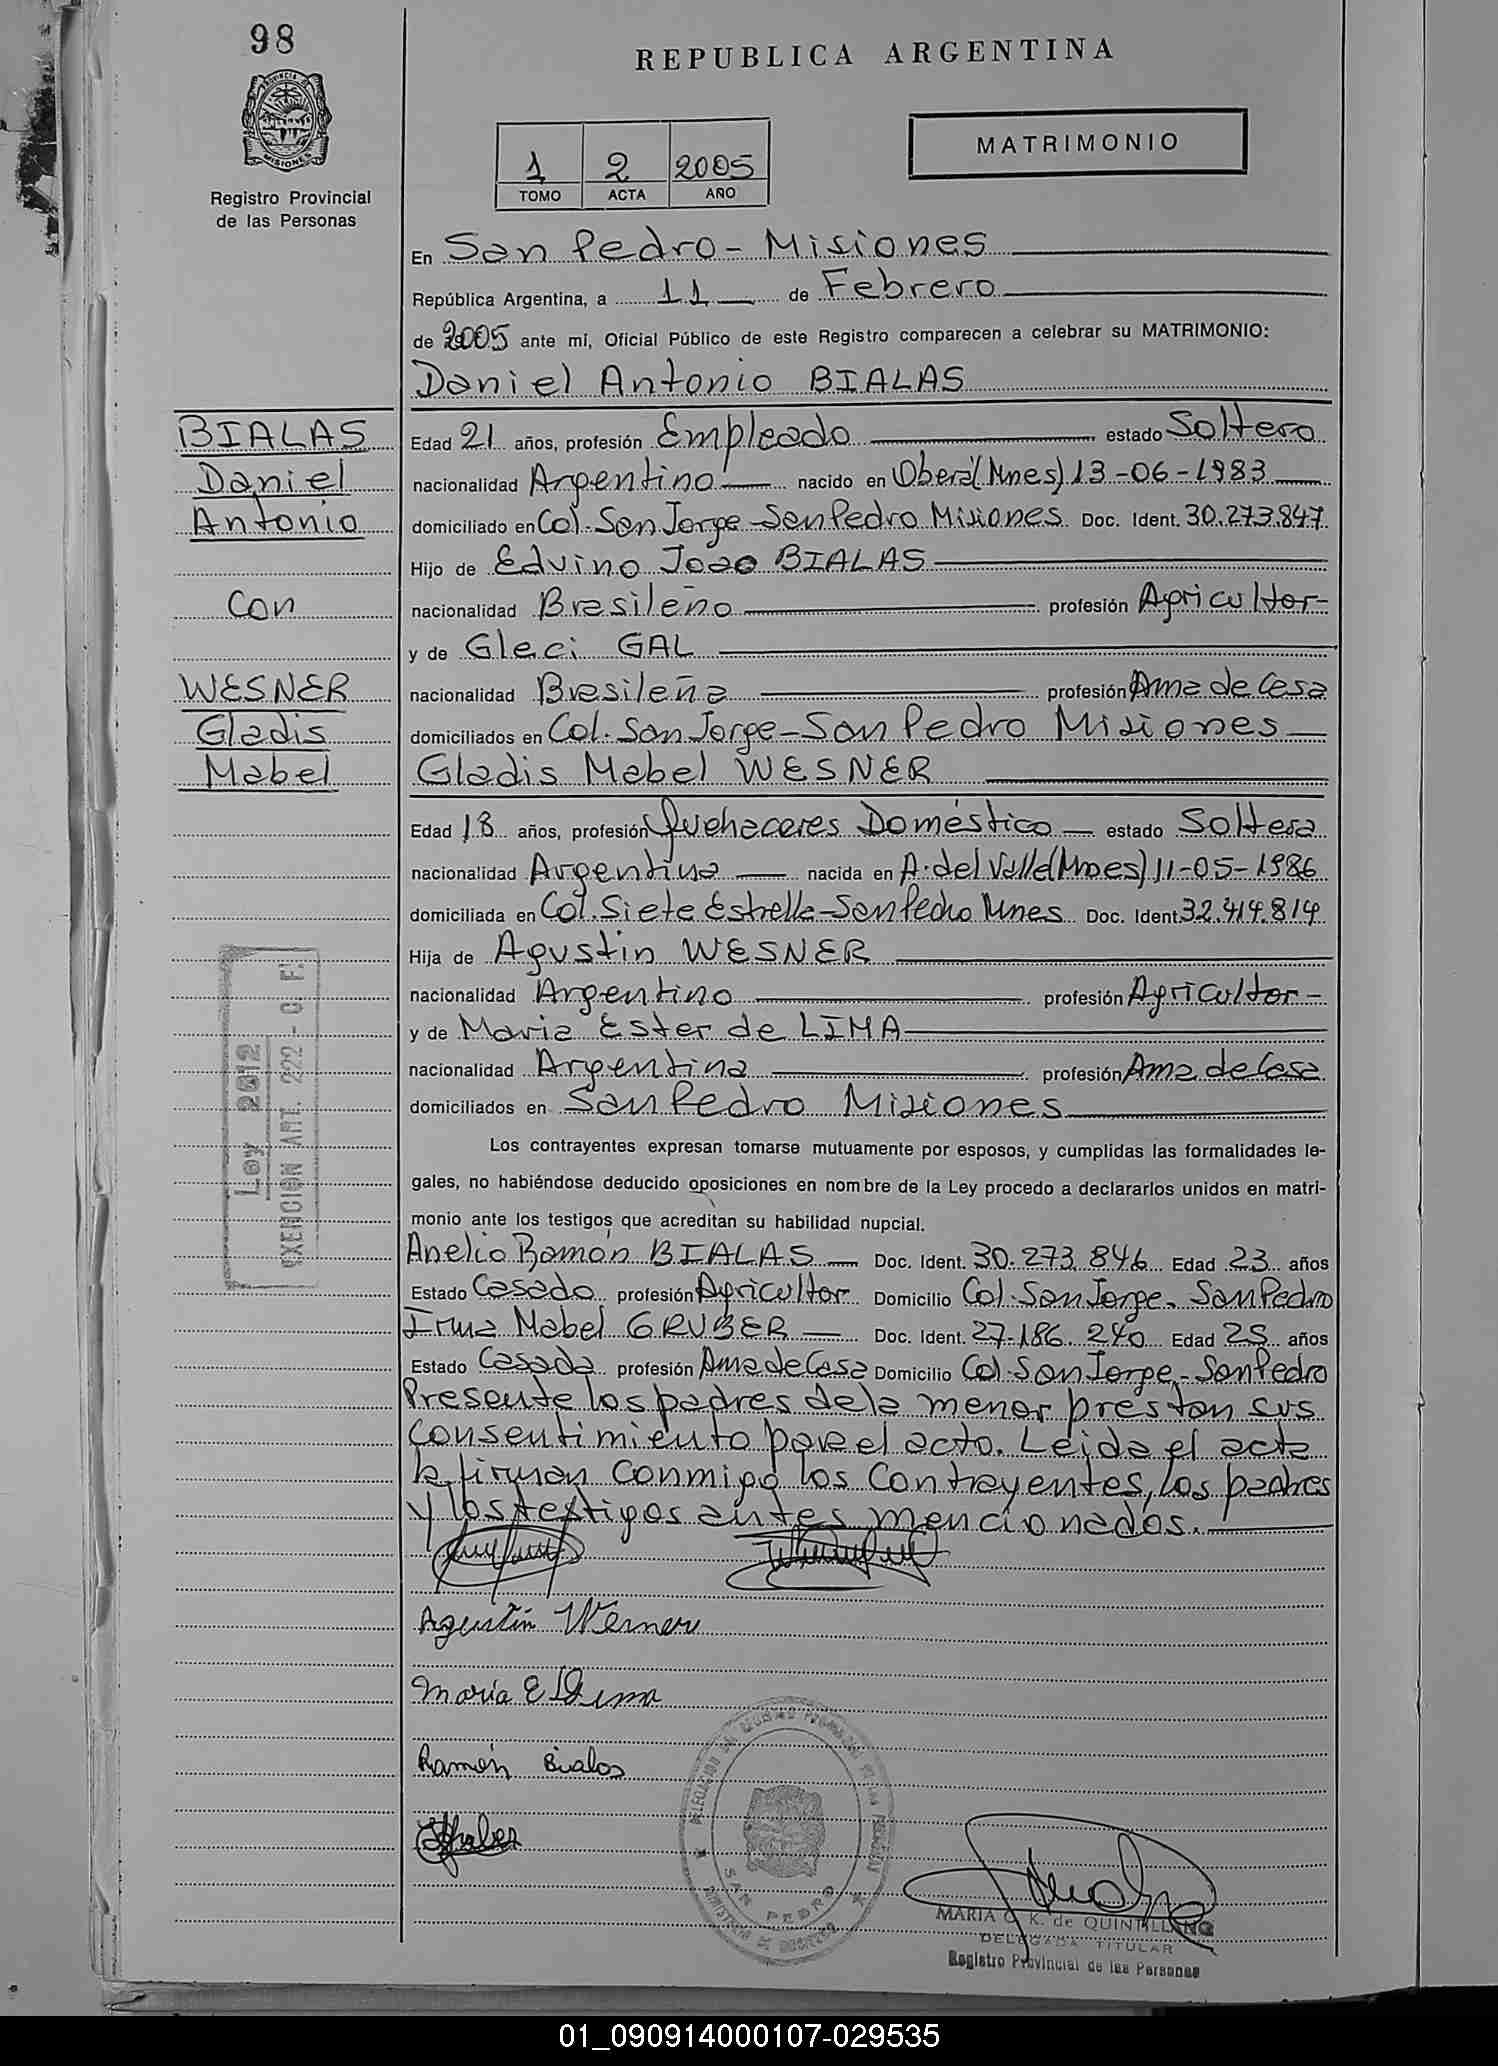 98
REPUBLICA ARGENTINA
PROVINCIA DE MISIONES
Registro Provincial
de las Personas
1 2 2005
TOMO ACTA AÑO
MATRIMONIO
En San Pedro - Misiones
República Argentina, a 11 de Febrero
de 2005 ante mí, Oficial Público de este Registro comparecen a celebrar su MATRIMONIO:
Daniel Antonio BIALAS
BIALAS
Daniel
Antonio
con
WESNER
Gladis
Mabel
Edad 21 años, profesión Empleado estado Soltero
nacionalidad Argentino nacido en Oberá (Mnes) 13-06-1983
domiciliado en Col. San Jorge - San Pedro Misiones Doc. Ident. 30.273.847
Hijo de Edvino Joao BIALAS
nacionalidad Brasileño profesión Agricultor-
y de Gleci GAL
nacionalidad Brasileña profesión Ama de Casa
domiciliados en Col. San Jorge - San Pedro Misiones
Gladis Mabel WESNER
Edad 18 años, profesión Quehaceres Doméstico estado Soltera
nacionalidad Argentina nacida en A. del Valle (Mnes) 11-05-1986
domiciliada en Col. Siete Estrella - San Pedro Mnes Doc. Ident. 32.414.814
Hija de Agustin WESNER
nacionalidad Argentino profesión Agricultor-
y de Maria Ester de LIMA
nacionalidad Argentina profesión Ama de Casa
domiciliados en San Pedro Misiones
Ley 2012
EXENCION ART. 222 - C F.
Los contrayentes expresan tomarse mutuamente por esposos, y cumplidas las formalidades le-
gales, no habiéndose deducido oposiciones en nombre de la Ley procedo a declararlos unidos en matri-
monio ante los testigos que acreditan su habilidad nupcial.
Anelio Ramón BIALAS Doc. Ident. 30.273.846 Edad 23 años
Estado Casado profesión Agricultor Domicilio Col. San Jorge - San Pedro
Irma Mabel GRUBER Doc. Ident. 27.186.240 Edad 25 años
Estado Casada profesión Ama de Casa Domicilio Col. San Jorge - San Pedro
Presente los padres de la menor prestan sus
consentimiento para el acto. Leida el acta
la firman conmigo los contrayentes, los padres
y los testigos antes mencionados.
Agustín Wesner
María E D Lima
Ramón Bialas
SAN PEDRO
MARIA C. K. de QUINTILLANO
DELEGADA TITULAR
Registro Provincial de las Personas
01_090914000107-029535